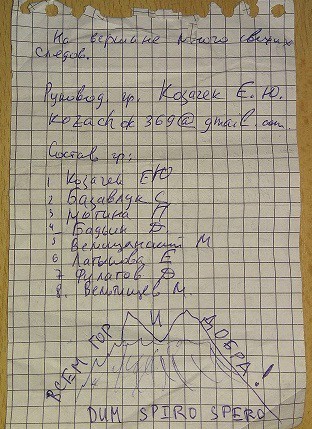 На вершине много свежих
следов.
Руковод. гр. Козачек Е.Ю.
kozachok369@gmail.com.
Состав гр:
1 Козачек ЕЮ
2 Базавлук С
3 Мотина П
4 Бадьин Д
5 М
6 Латыпова Е
7 Филатов Д
8. Вельтищев М.
ВСЕМ ГОР И ДОБРА!
DUM SPIRO SPERO